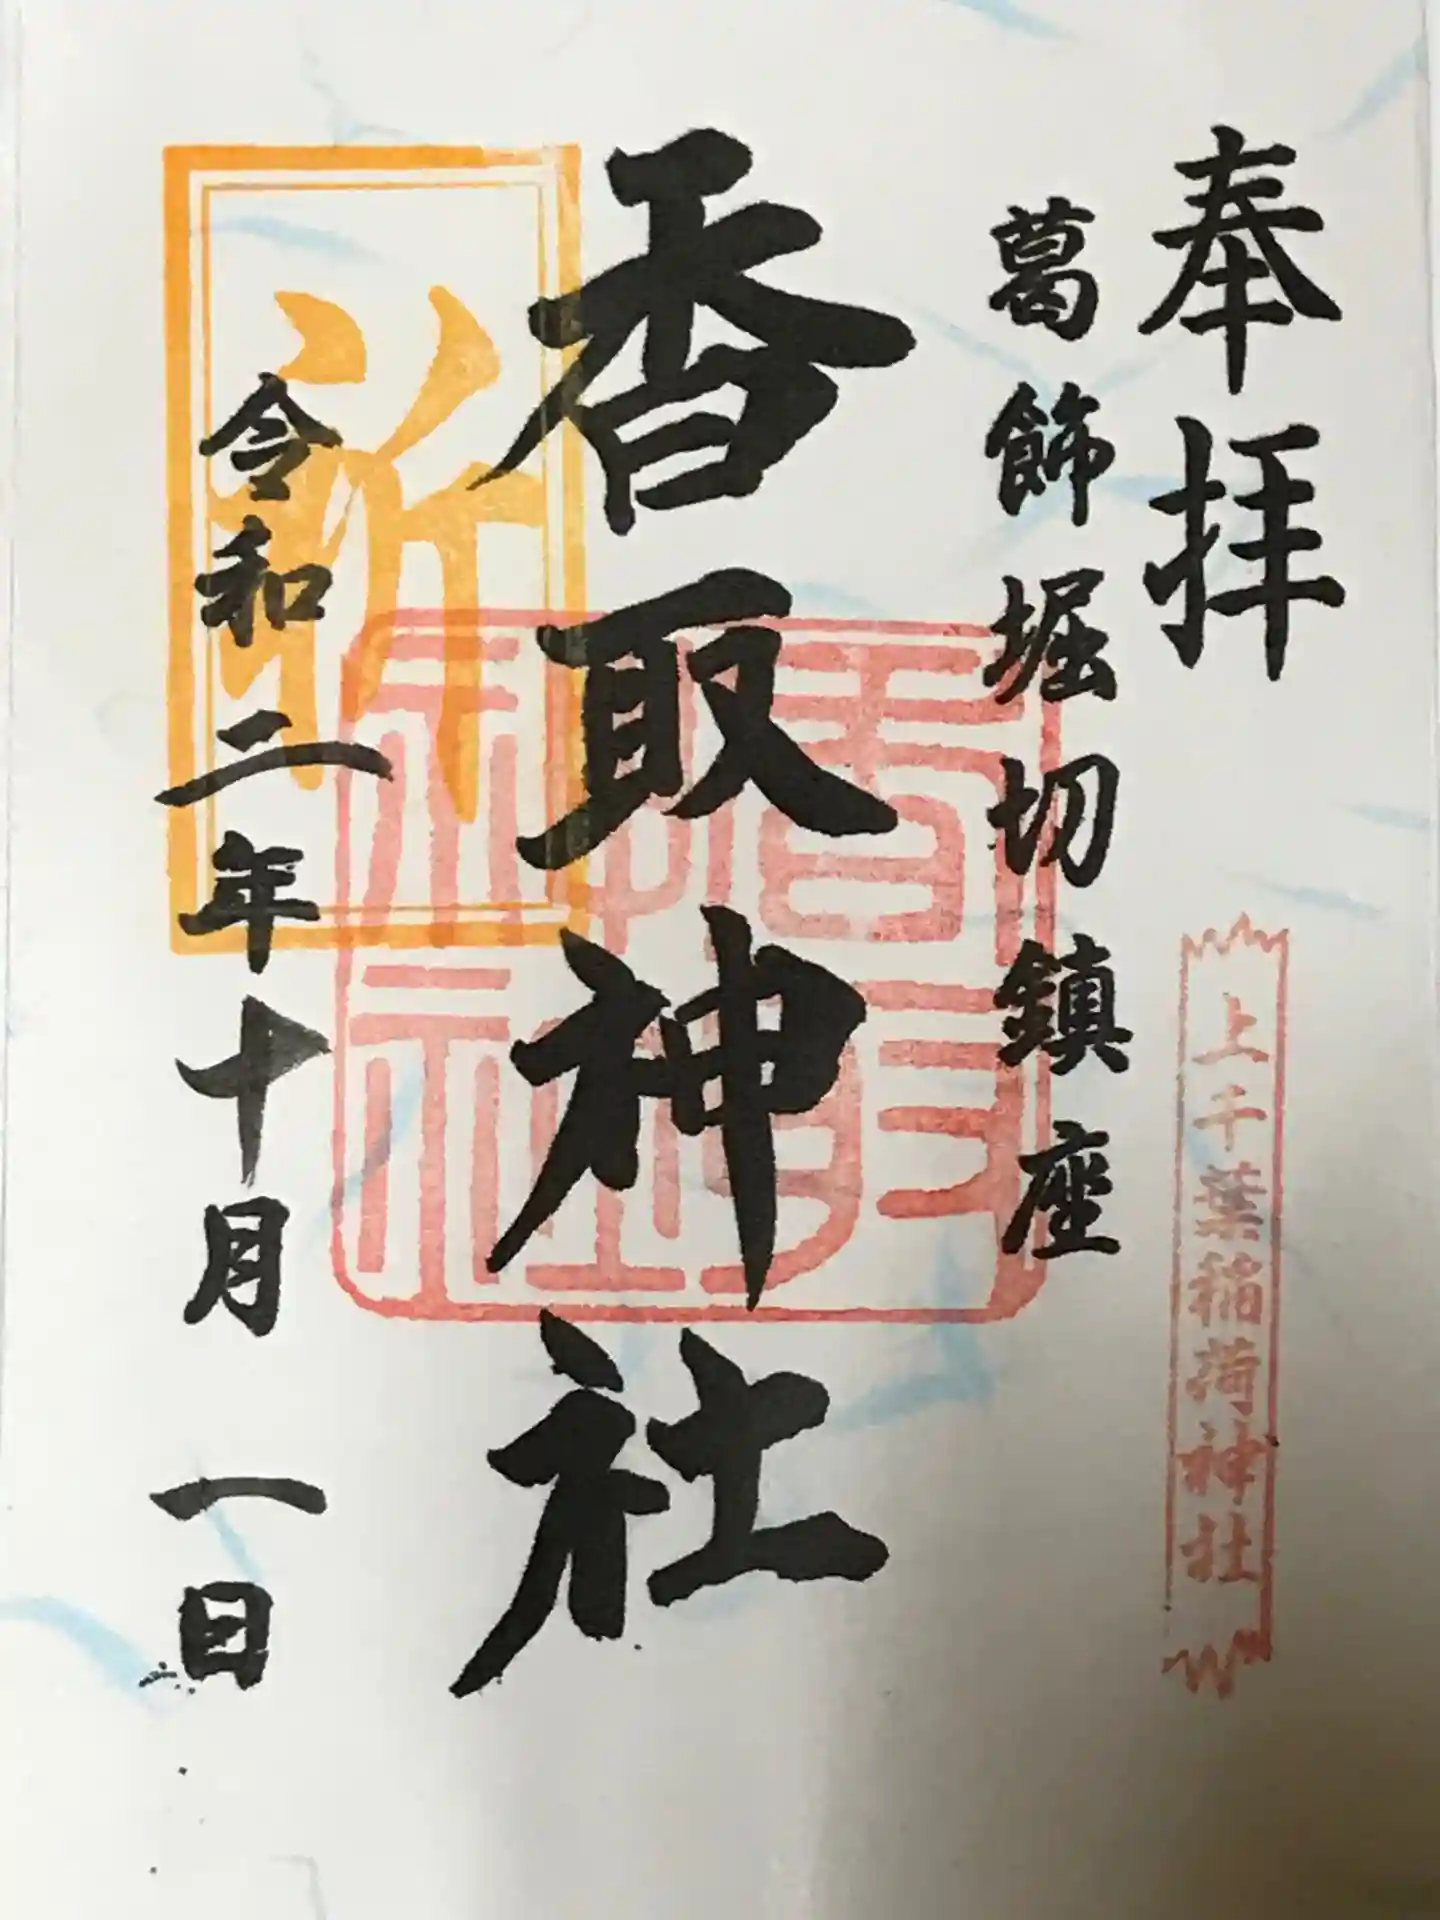 奉拝
上千葉稲荷神社
葛飾堀切鎮座
香取神社
香取神社
令和二年十月一日
祈